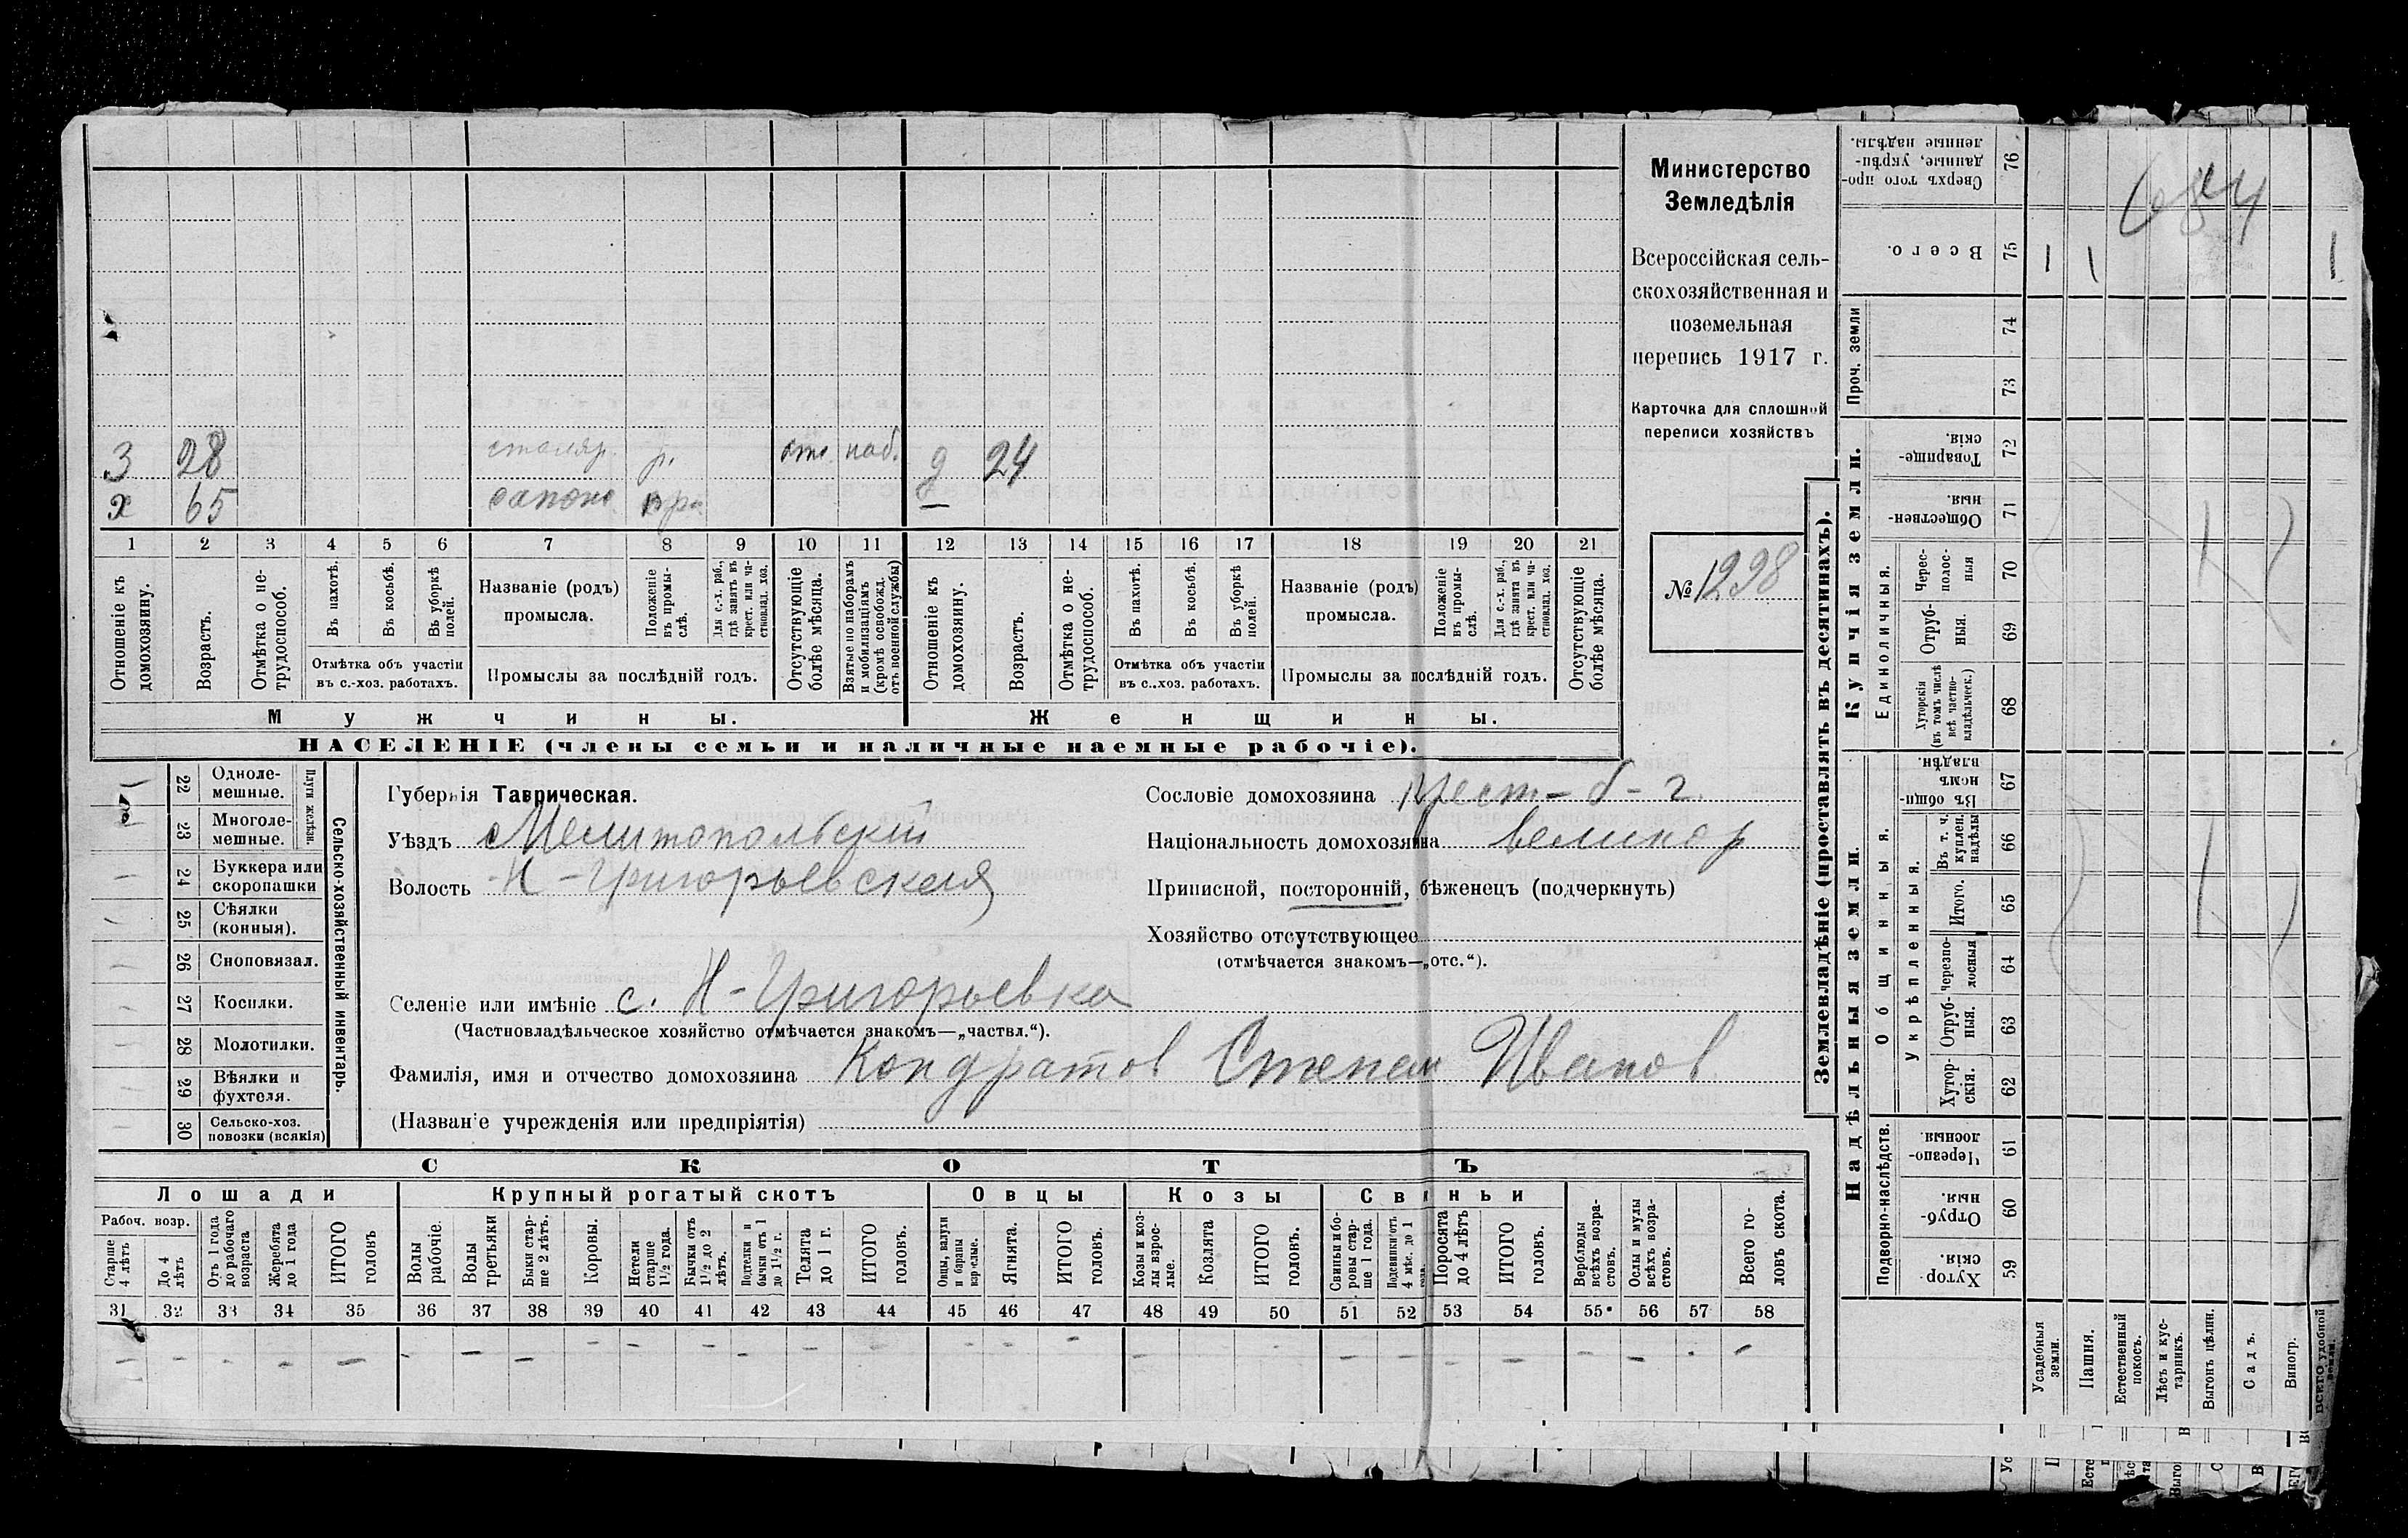 3 28 столяр. р. отс. наб. д 24
х 65 сапожн —
1 2 3 4 5 6 7 8 9 10 11 12 13 14 15 16 17 18 19 20 21
Отношеніе къ домохозяину.
Возрастъ.
Отмѣтка о не-
трудоспособ.
Въ пахотѣ.
Въ косьбѣ.
Въ уборкѣ
полей.
Отмѣтка объ участіи
въ с.-хоз. работахъ.
Названіе (родъ)
промысла.
Положеніе
въ промы-
слѣ.
Для с.-х. раб.,
гдѣ занятъ въ
крест. или ча-
стновлад. хоз.
Промыслы за послѣдній годъ.
Отсутствующіе
болѣе мѣсяца.
Взятые по наборамъ
и мобилизаціямъ
(кромѣ освобожд.
отъ военной службы)
Отношеніе къ
домохозяину.
Возрастъ.
Отмѣтка о не-
трудоспособ.
Въ пахотѣ.
Въ косьбѣ.
Въ уборкѣ
полей.
Отмѣтка объ участіи
въ с.-хоз. работахъ.
Названіе (родъ)
промысла.
Положеніе
въ промы-
слѣ.
Для с.-х. раб.,
гдѣ занята въ
крест. или ча-
стновлад. хоз.
Промыслы за послѣдній годъ.
Отсутствующіе
болѣе мѣсяца.
Мужчины. Женщины.
НАСЕЛЕНІЕ (члены семьи и наличные наемные рабочіе).
Министерство
Земледѣлія
Всероссійская сель-
скохозяйственная и
поземельная
перепись 1917 г.
Карточка для сплошной
переписи хозяйствъ
№ 1298
22 Одноле-
мешные.
23 Многоле-
мешные.
Плуги желѣзн.
24 Буккера или
скоропашки
25 Сѣялки
(конныя).
26 Сноповязал.
27 Косилки.
28 Молотилки.
29 Вѣялки и
фухтеля.
30 Сельско-хоз.
повозки (всякія)
Сельско-хозяйственный инвентарь.
Губернія Таврическая.
Уѣздъ Мелитопольскій
Волость Н-Григорьевская
Селеніе или имѣніе с. Н-Григорьевка
(Частновладѣльческое хозяйство отмѣчается знакомъ—„частвл.“).
Фамилія, имя и отчество домохозяина Кондратов Степан Иванов
(Названіе учрежденія или предпріятія)
Сословіе домохозяина крест-б-г.
Національность домохозяина великор
Приписной, посторонній, бѣженецъ (подчеркнуть)
Хозяйство отсутствующее
(отмѣчается знакомъ—„отс.“).
СКОТЪ
Лошади Крупный рогатый скотъ Овцы Козы Свиньи
Рабоч. возр.
Старше
4 лѣтъ
До 4
лѣтъ
Отъ 1 года
до рабочаго
возраста
Жеребята
до 1 года
ИТОГО
головъ
Волы
рабочіе.
Волы
третьяки
Быки стар-
ше 2 лѣтъ.
Коровы.
Нетели
старше
1½ года.
Бычки отъ
1½ до 2
лѣтъ.
Подтелки и
бычки отъ 1
до 1½ г.
Телята
до 1 г.
ИТОГО
головъ.
Овцы, валухи
и бараны
взрослые.
Ягнята.
ИТОГО
головъ.
Козы и коз-
лы взрос-
лые.
Козлята
ИТОГО
головъ.
Свиньи и бо-
ровы стар-
ше 1 года.
Подсвинки отъ
4 мѣс. до 1
года.
Поросята
до 4 лѣтъ
ИТОГО
головъ.
Верблюды
всѣхъ возра-
стовъ.
Ослы и мулы
всѣхъ возра-
стовъ.
Всего го-
ловъ скота.
31 32 33 34 35 36 37 38 39 40 41 42 43 44 45 46 47 48 49 50 51 52 53 54 55 56 57 58
Землевладѣніе (проставлять въ десятинахъ).
Сверхъ того про-
данные, укрѣп-
ленные надѣлы.
76
Всего. 75
Проч. земли
74
73
Купчія земли.
Товарище-
скія. 72
Обществен-
ныя. 71
Единоличныя.
Черес-
полос-
ныя 70
Отруб-
ныя. 69
Хуторскія
(въ томъ числѣ
всѣ частно-
владѣльческ.) 68
Надѣльныя земли.
Общинныя.
Въ общин-
номъ
владѣн. 67
Укрѣпленныя.
Въ т. ч.
куплен.
надѣлы 66
Итого. 65
Черезпо-
лосныя 64
Отруб-
ныя. 63
Хутор-
скія. 62
Подворно-наслѣдств.
Черезпо-
лосныя. 61
Отруб-
ныя. 60
Хутор-
скія. 59
Усадебныя
земли.
Пашня.
Естественный
покосъ.
Лѣсъ и кус-
тарникъ.
Выгонъ цѣлин.
Садъ.
Виногр.
ВСЕГО удобной
земли.